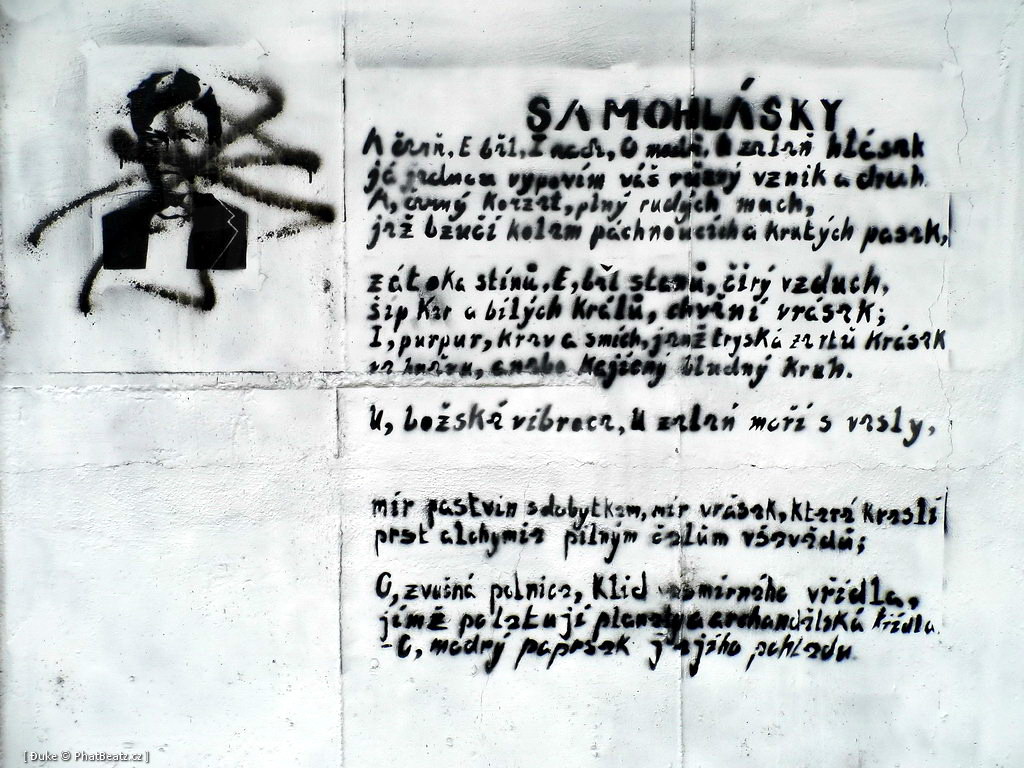 SAMOHLÁSKY
A čerň, E běl, I nach, O modř, U zeleň hlásek
já jednou vypovím váš vznik a druh.
A, černý korzet, plný rudých much,
jež bzučí kolem páchnoucích a krutých pasek,
zátoka stínů, E, běl stanů, čirý vzduch,
šíp ker a bílých králů, chvění vrásek;
I, purpur, krev a smích, jenž tryská ze rtů krásek
ve hněvu, anebo kajícný bludný kruh.
U, božské vibrace, U zeleň moří s vesly,
mír pastvin s dobytkem, mír vrásek, které kreslí
prst alchymie pilným čelům vševědů;
O, zvučná polnice, klid vesmírného vřídla,
jímž poletují planety a archandělská křídla.
- O, modrý paprsek jejího pohledu
[ Duke © PhatBeatz.cz ]